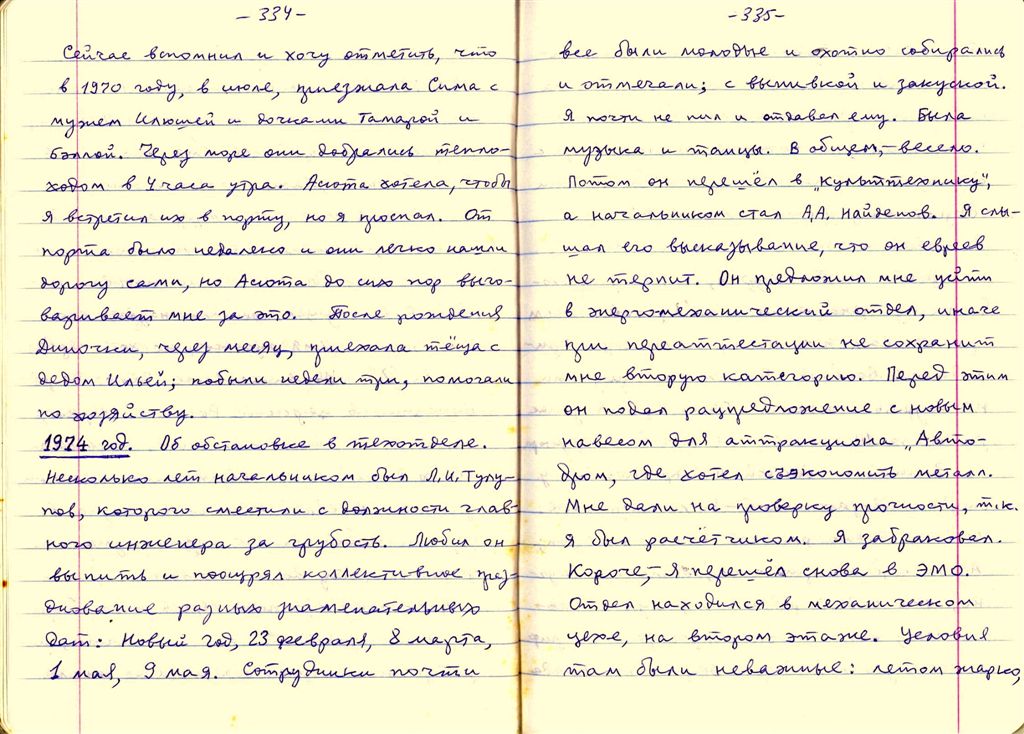 - 334 -
Сейчас вспомнил и хочу отметить, что
в 1970 году, в июле, приезжала Сима с
мужем Илюшей и дочками Тамарой и
Бэллой. Через море они добрались тепло-
ходом в 4 часа утра. Асюта хотела, чтобы
я встретил их в порту, но я проспал. От
порта было недалеко и они легко нашли
дорогу сами, но Асюта до сих пор выго-
варивает мне за это. После рождения
Диночки, через месяц, приехала тёща с
дедом Ильёй; побыли недели три, помогали
по хозяйству.
1974 год. Об обстановке в техотделе.
Несколько лет начальником был Л.И. Тулу-
пов, которого сместили с должности глав-
ного инженера за грубость. Любил он
выпить и поощрял коллективное празд-
днование разных знаменательных
дат: Новый год, 23 февраля, 8 марта,
1 мая, 9 мая. Сотрудники почти
- 335 -
все были молодые и охотно собирались
и отмечали; с выпивкой и закуской.
Я почти не пил и отдавал ему. Была
музыка и танцы. В общем,- весело.
Потом он перешёл в „Культтехнику",
а начальником стал А.А. Найденов. Я слы-
шал его высказывание, что он евреев
не терпит. Он предложил мне уйти
в энергомеханический отдел, иначе
при переаттестации не сохранит
мне вторую категорию. Перед этим
он подал рацпредложение с новым
навесом для аттракциона „Авто-
дром, где хотел сэкономить металл.
Мне дали на проверку прочности, т.к.
я был расчётчиком. Я забраковал.
Короче,- я перешёл снова в ЭМО.
Отдел находился в механическом
цехе, на втором этаже. Условия
там были неважные: летом жарко,